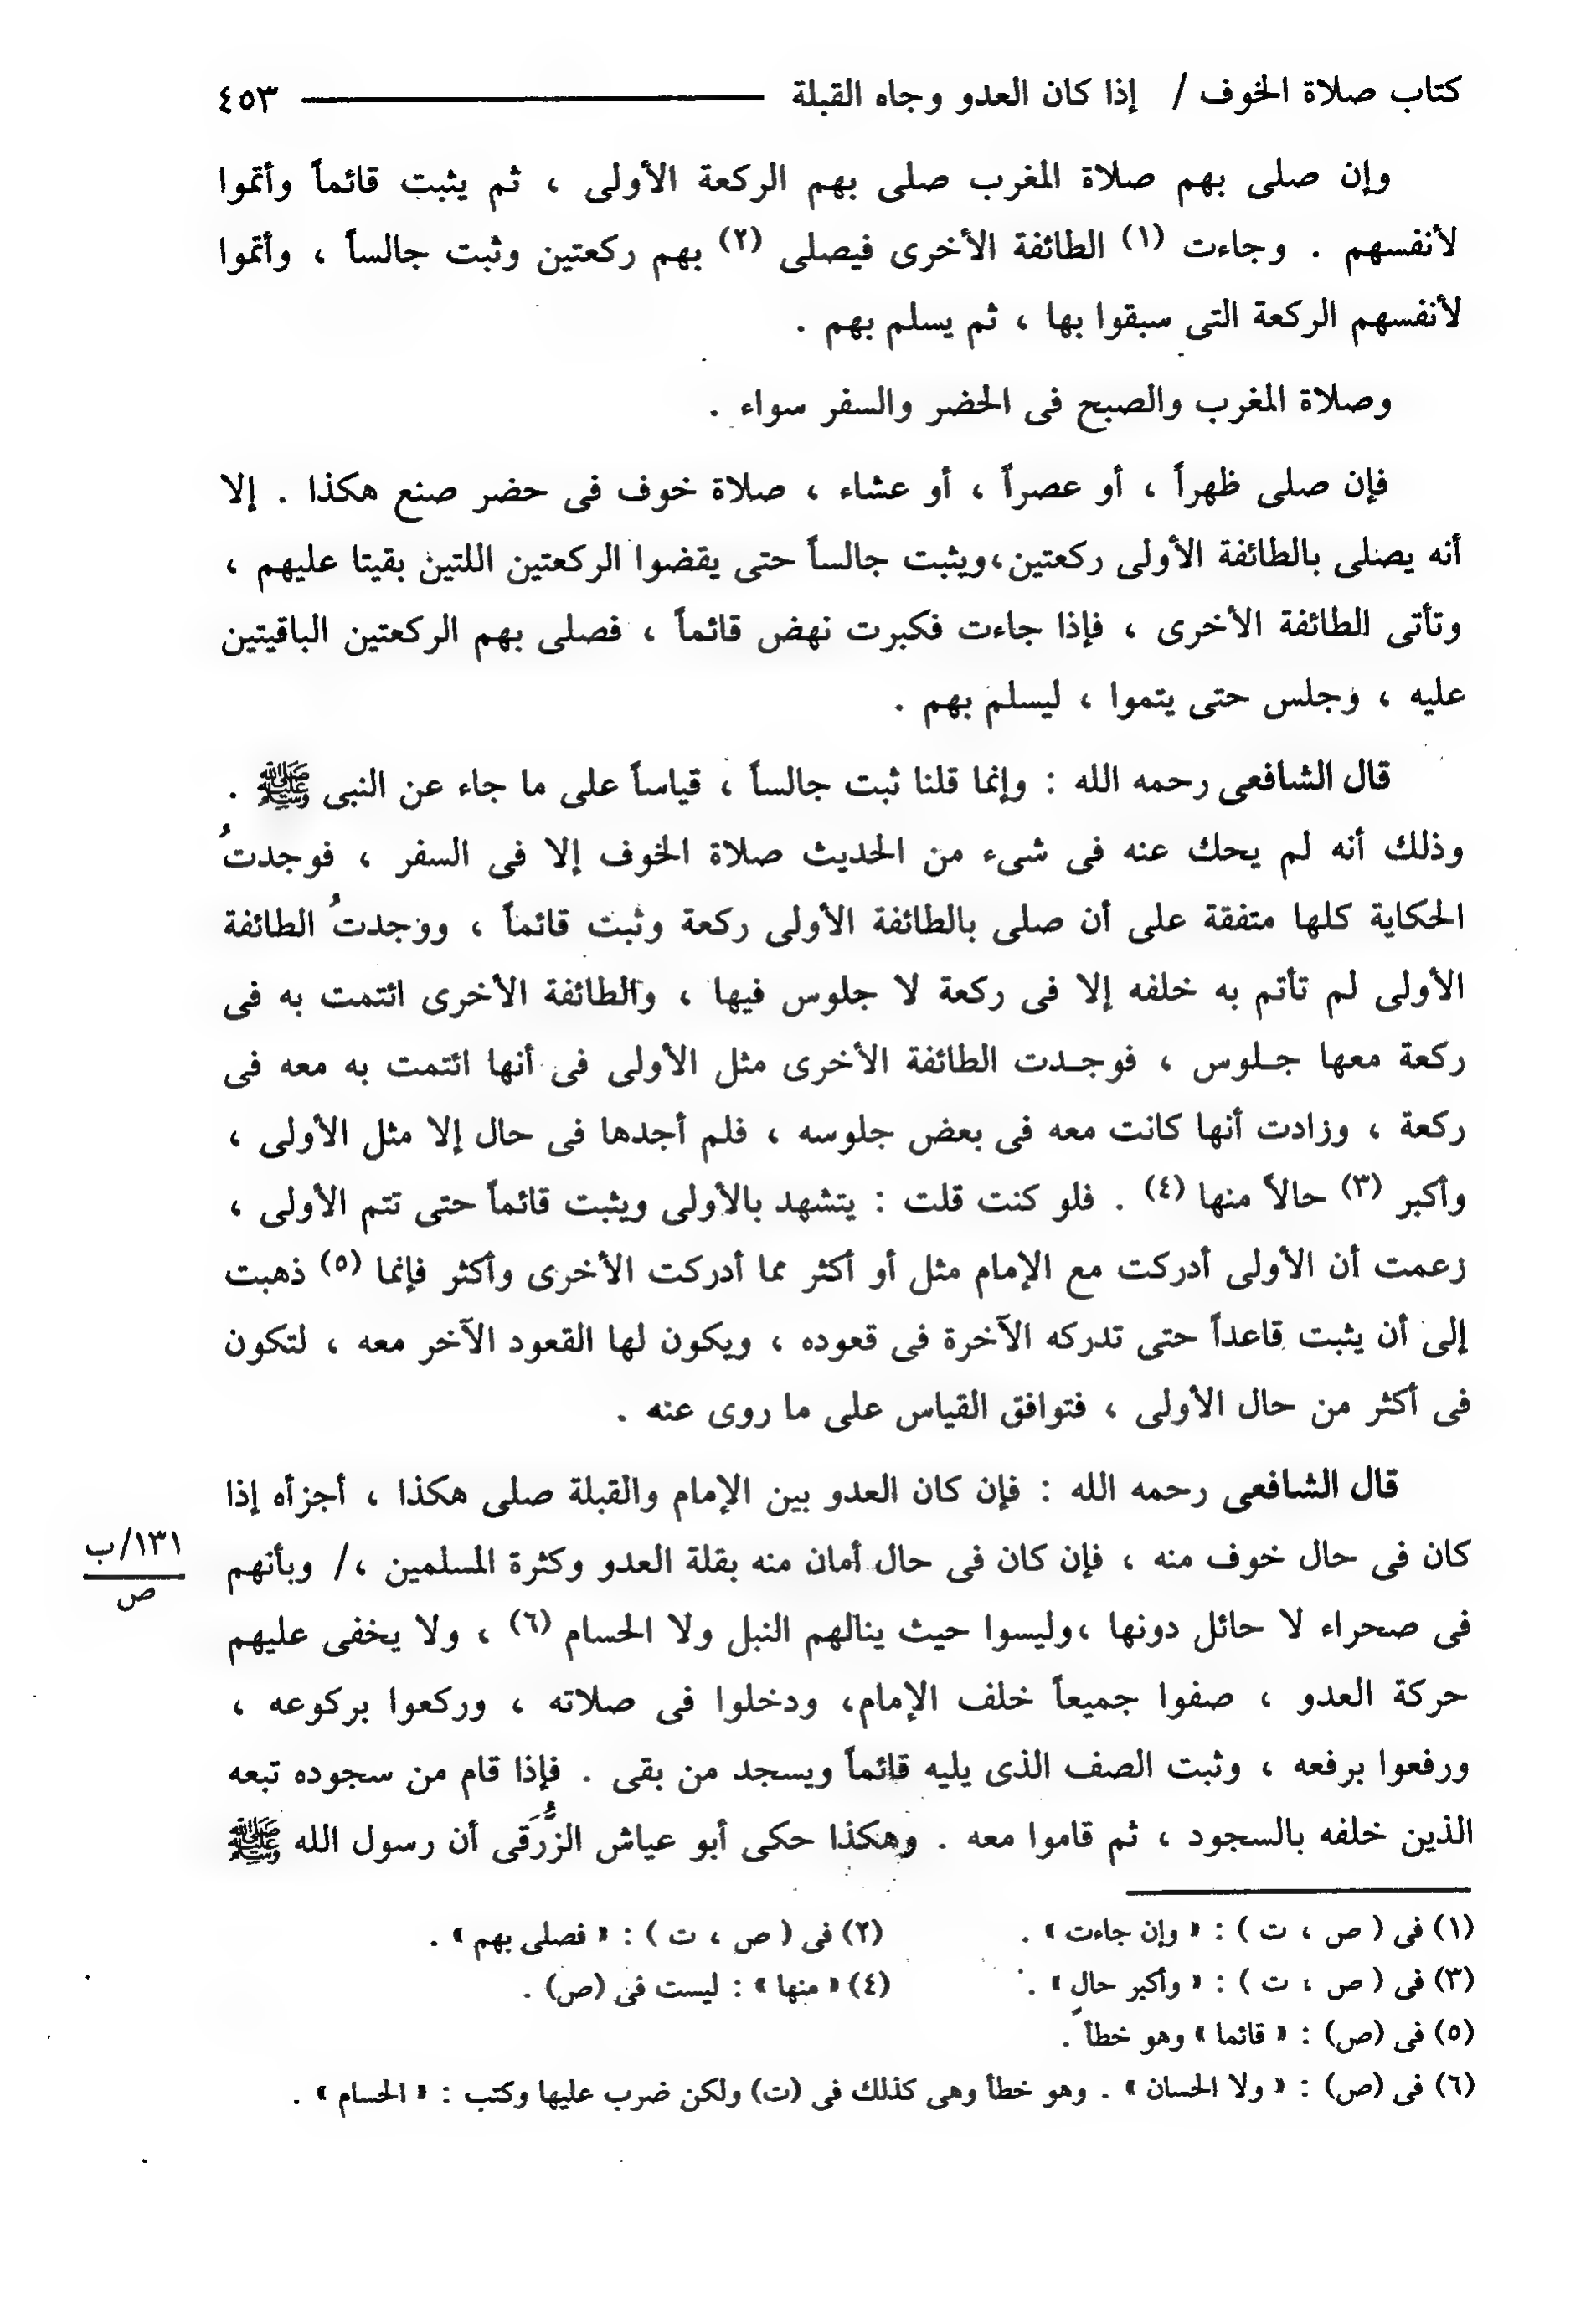 كتاب صلاة الخوف / إذا كان العدو وجاه القبلة ٤٥٣
وإن صلى بهم صلاة المغرب صلى بهم الركعة الأولى ، ثم يثبت قائماً وأتموا
لأنفسهم . وجاءت (١) الطائفة الأخرى فيصلى (٢) بهم ركعتين وثبت جالساً ، وأتموا
لأنفسهم الركعة التى سبقوا بها ، ثم يسلم بهم .
وصلاة المغرب والصبح فى الحضر والسفر سواء .
فإن صلى ظهراً ، أو عصراً ، أو عشاء ، صلاة خوف فى حضر صنع هكذا . إلا
أنه يصلى بالطائفة الأولى ركعتين،ويثبت جالساً حتى يقضوا الركعتين اللتين بقيتا عليهم ،
وتأتى الطائفة الأخرى ، فإذا جاءت فكبرت نهض قائماً ، فصلى بهم الركعتين الباقيتين
عليه ، وجلس حتى يتموا ، ليسلم بهم .
قال الشافعى رحمه الله : وإنما قلنا ثبت جالساً ، قياساً على ما جاء عن النبى ﷺ .
وذلك أنه لم يحك عنه فى شىء من الحديث صلاة الخوف إلا فى السفر ، فوجدتُ
الحكاية كلها متفقة على أن صلى بالطائفة الأولى ركعة وثبت قائماً ، ووجدتُ الطائفة
الأولى لم تأتم به خلفه إلا فى ركعة لا جلوس فيها ، والطائفة الأخرى ائتمت به فى
ركعة معها جـلوس ، فوجـدت الطائفة الأخرى مثل الأولى فى أنها ائتمت به معه فى
ركعة ، وزادت أنها كانت معه فى بعض جلوسه ، فلم أجدها فى حال إلا مثل الأولى ،
وأكبر (٣) حالاً منها (٤) . فلو كنت قلت : يتشهد بالأولى ويثبت قائماً حتى تتم الأولى ،
زعمت أن الأولى أدركت مع الإمام مثل أو أكثر مما أدركت الأخرى وأكثر فإنما (٥) ذهبت
إلى أن يثبت قاعداً حتى تدركه الآخرة فى قعوده ، ويكون لها القعود الآخر معه ، لتكون
فى أكثر من حال الأولى ، فتوافق القياس على ما روى عنه .
قال الشافعى رحمه الله : فإن كان العدو بين الإمام والقبلة صلى هكذا ، أجزأه إذا
كان فى حال خوف منه ، فإن كان فى حال أمان منه بقلة العدو وكثرة المسلمين ،/ وبأنهم
١٣١/ب
ص
فى صحراء لا حائل دونها ،وليسوا حيث ينالهم النبل ولا الحسام (٦) ، ولا يخفى عليهم
حركة العدو ، صفوا جميعاً خلف الإمام، ودخلوا فى صلاته ، وركعوا بركوعه ،
ورفعوا برفعه ، وثبت الصف الذى يليه قائماً ويسجد من بقى . فإذا قام من سجوده تبعه
الذين خلفه بالسجود ، ثم قاموا معه . وهكذا حكى أبو عياش الزُّرَقى أن رسول الله ﷺ
(١) فى ( ص ، ت ) : « وإن جاءت » . (٢) فى ( ص ، ت ) : « فصلى بهم » .
(٣) فى ( ص ، ت ) : « وأكبر حالٍ » . (٤) « منها » : ليست فى (ص) .
(٥) فى (ص) : « قائما » وهو خطأ .
(٦) فى (ص) : « ولا الحسان » . وهو خطأ وهى كذلك فى (ت) ولكن ضرب عليها وكتب : « الحسام » .